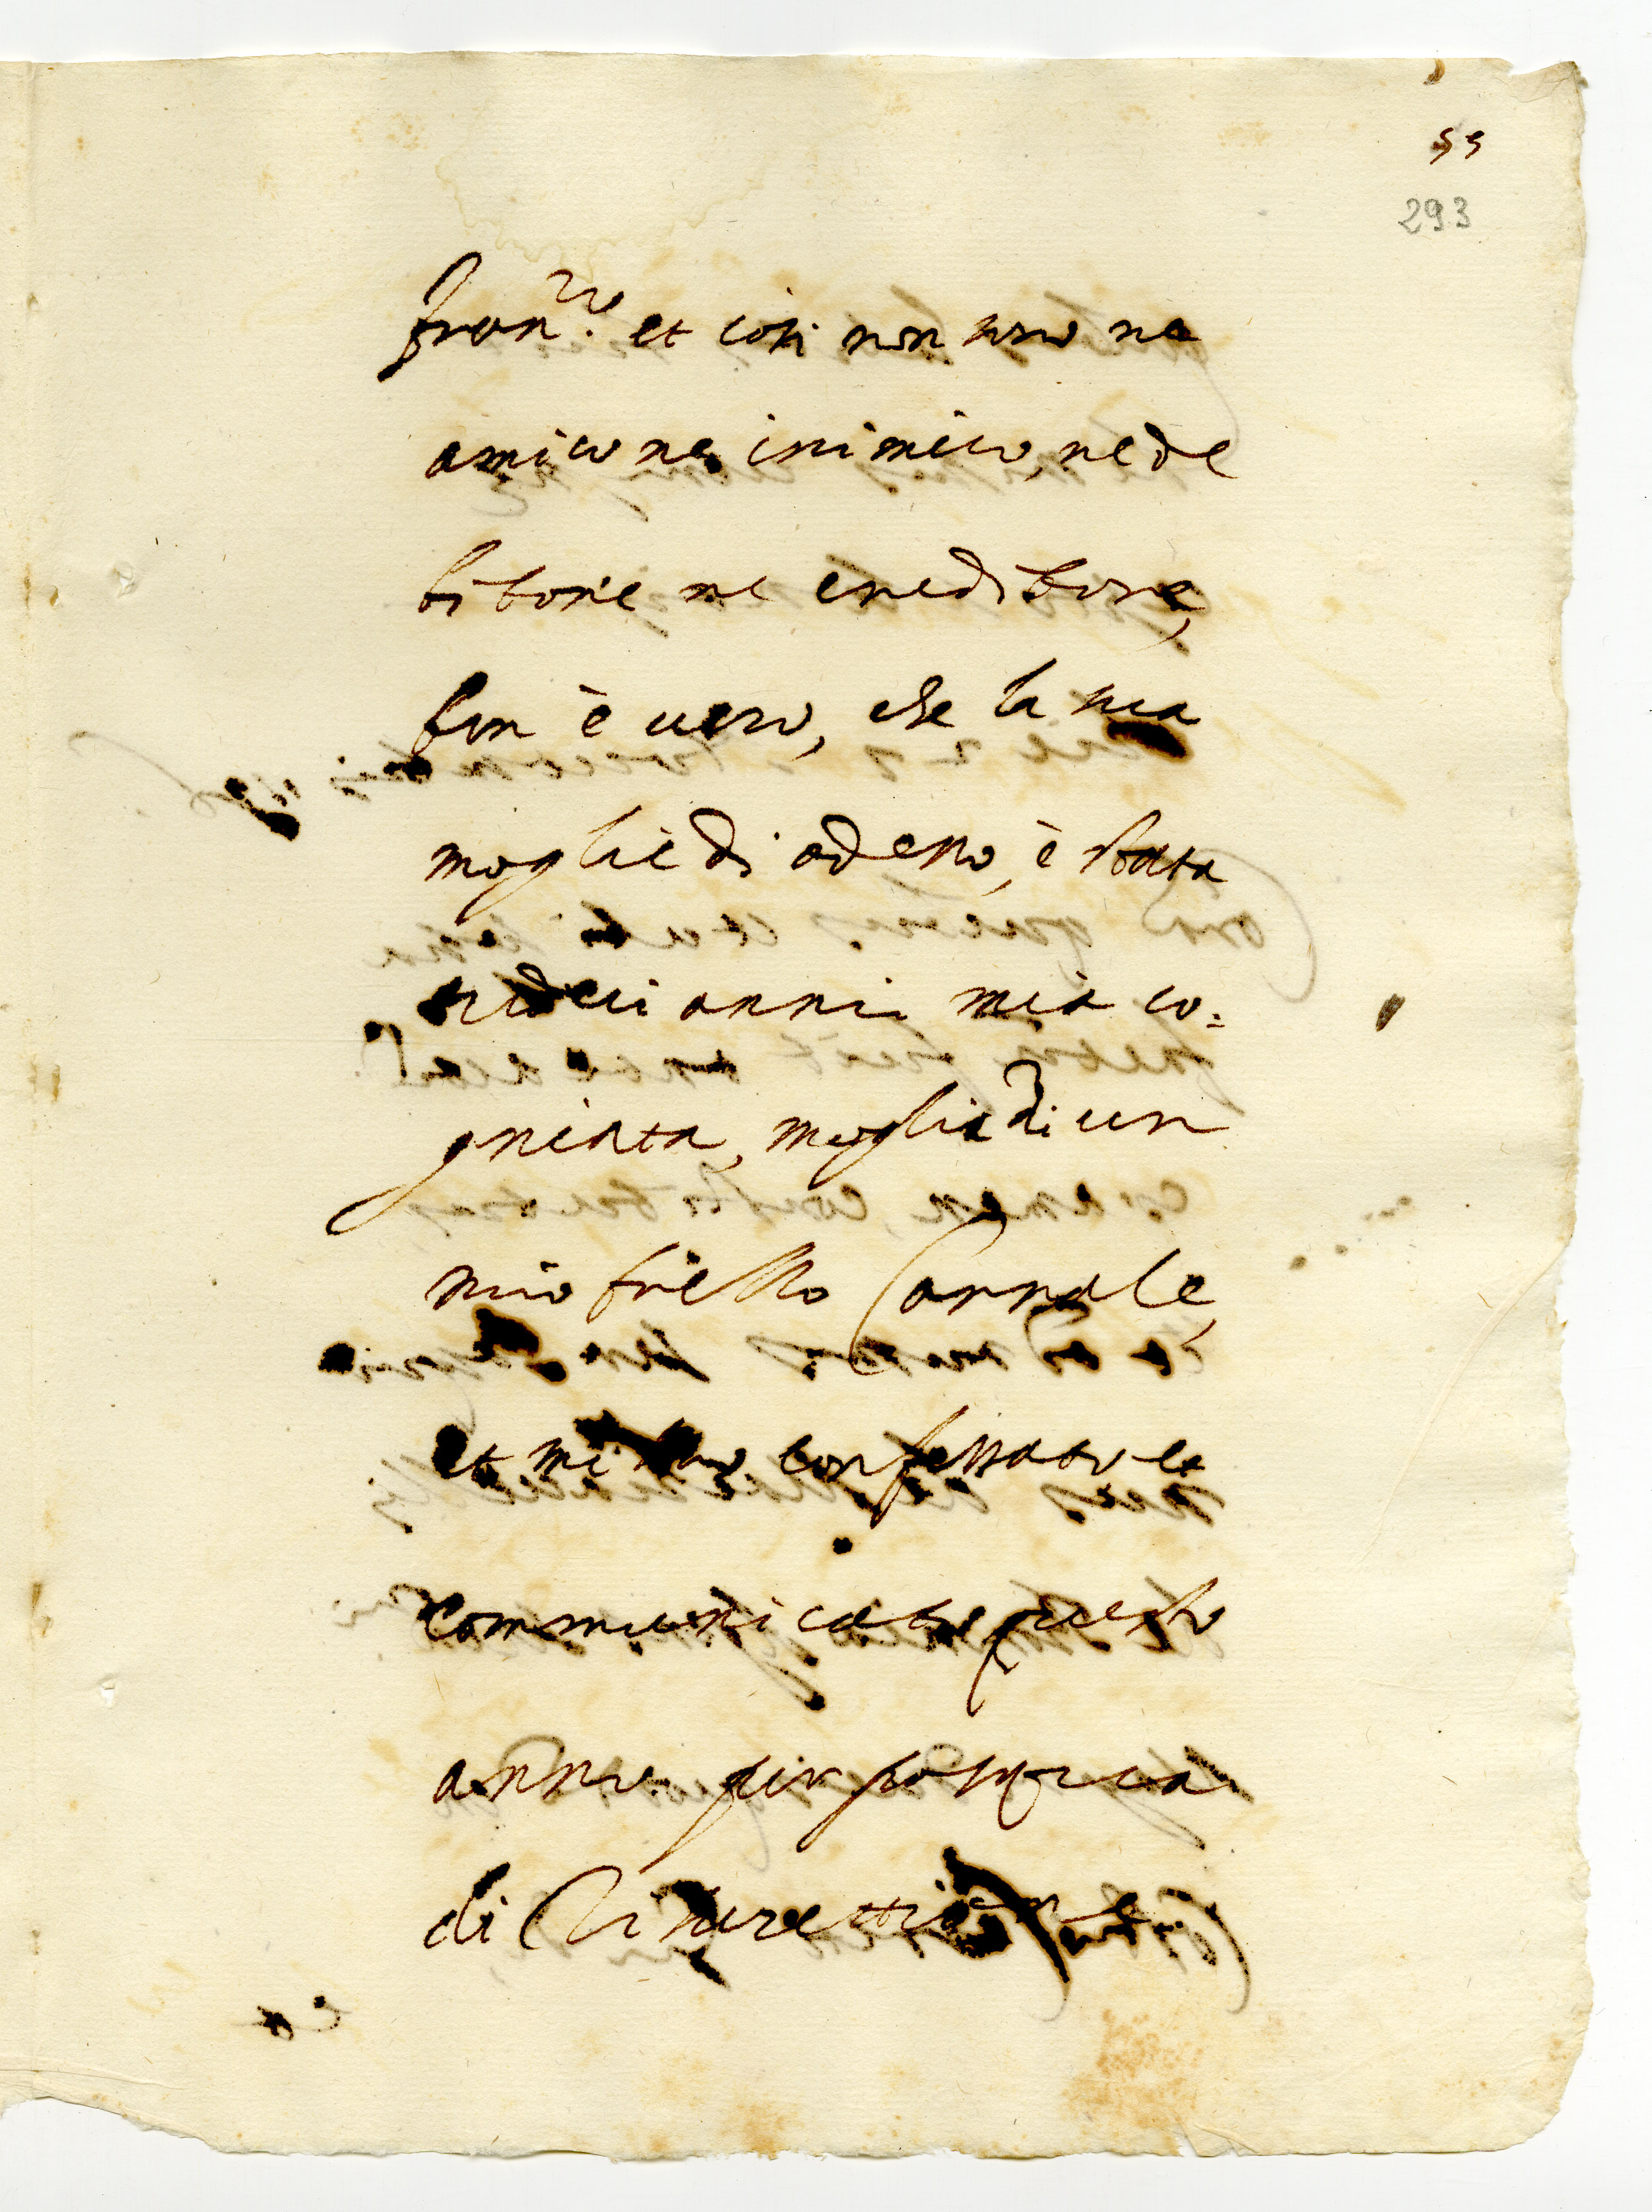 55
293
fran.co et così non sono ne
amico ne inimico, ne de
bitore ne creditore,
ben è vero, che la mia
moglie di adesso, è stata
anni mia co=
gniata, moglie di un
mio frello Carnale,
et mi sono confessato et
communicato questo
anno per pasqua
di